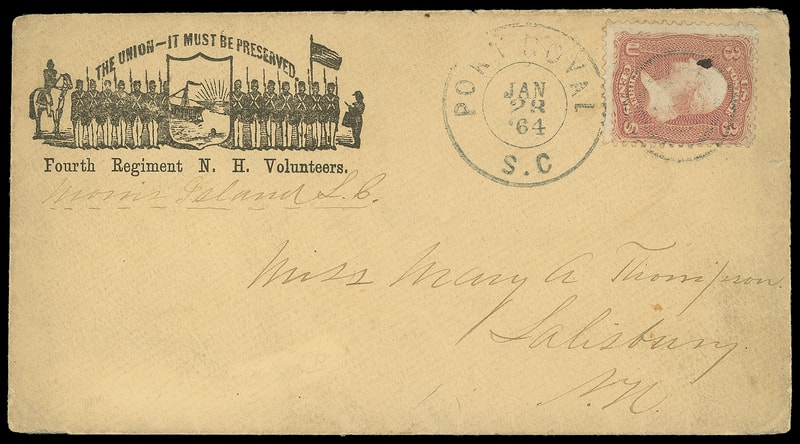 THE UNION—IT MUST BE PRESERVED.
Fourth Regiment N. H. Volunteers.
Morris Island S.C.
PORT ROYAL
JAN
23
'64
S.C
U S
3 3
Miss Mary A Thompson.
Salisbury.
N.H.